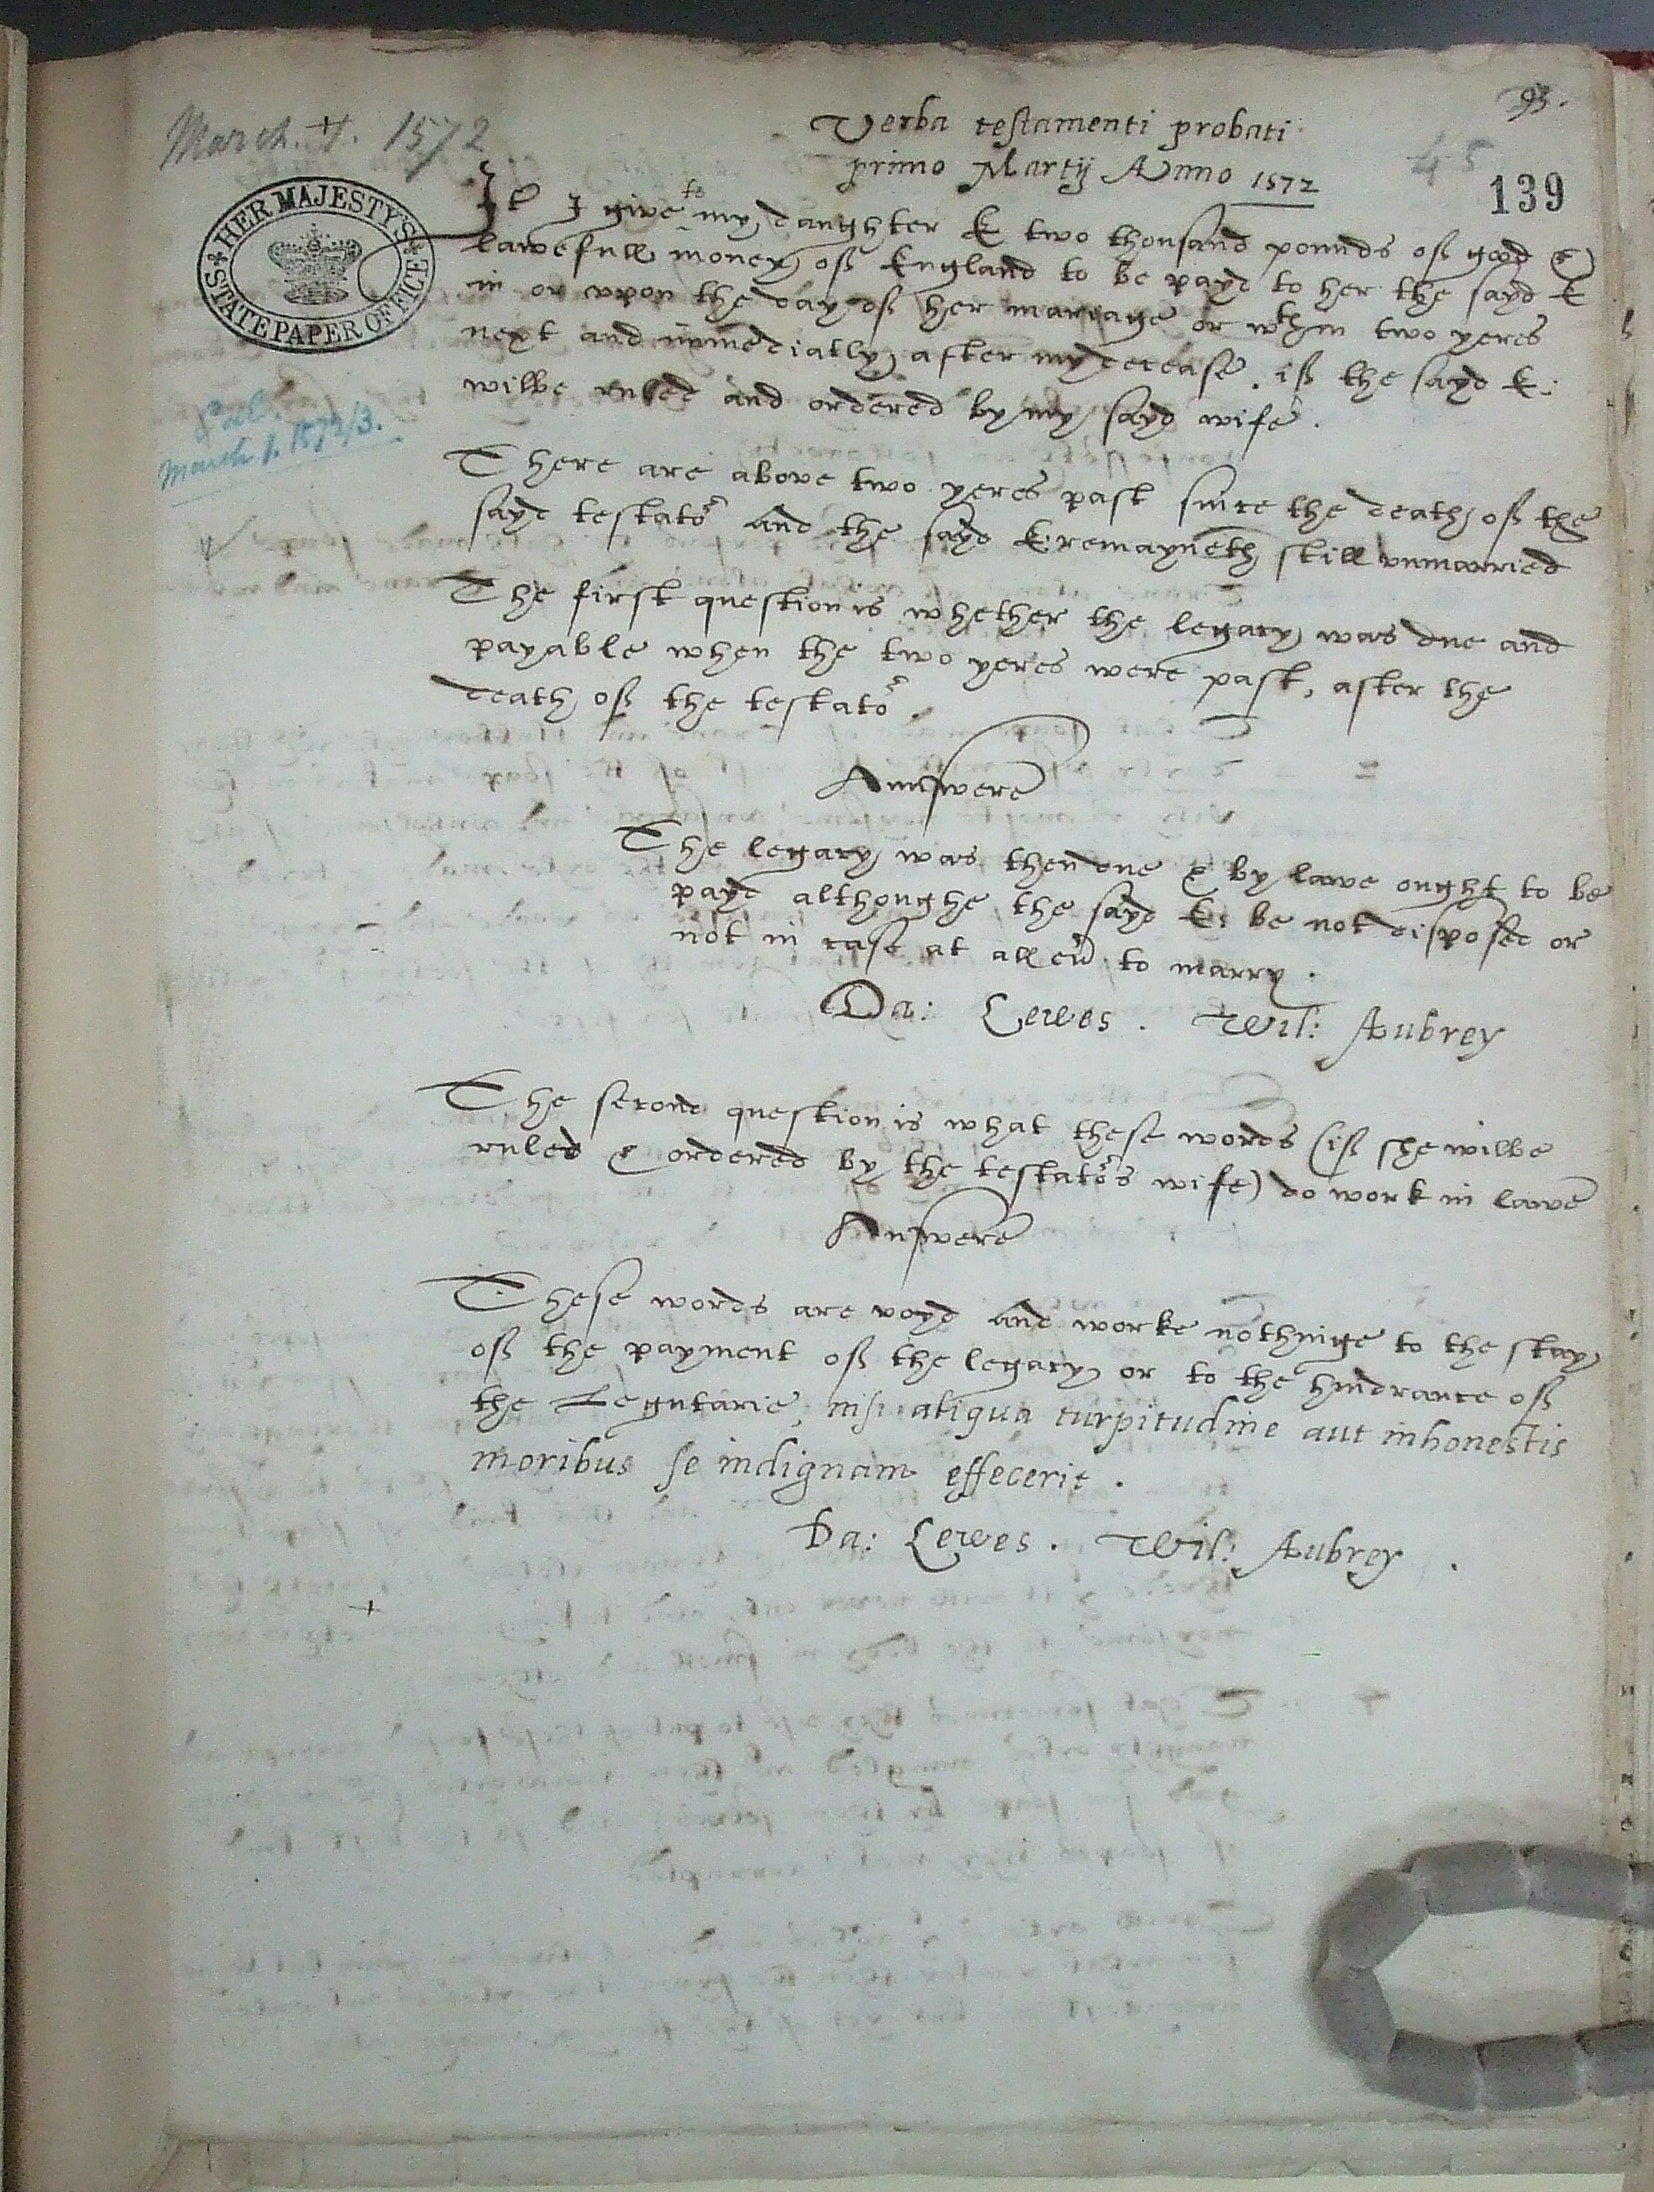 93.
March. 1. 1572
Verba testamenti probati
45
primo Martij Anno 1572
139
HER MAJESTY'S STATE PAPER OFFICE
It I give to my daughter E two thousand pounds off good &
lawefull money off England to be payd to her the sayd E
in or vpon the day off her mariage or wthin two yeres
next and immediatly after my decease, iff the sayd E:
wilbe ruled and ordered by my sayd wife.
March 1. 1572/3.
There are above two yeres past since the death off the
sayd testator and the sayd E: remayneth still vnmarried
The first question is whether the legacy was due and
payable when the two yeres were past, after the
death off the testator
Answere
The legacy was then due & by lawe ought to be
payd althoughe the sayd E: be not disposed or
not in case at all eu to marry.
Da: Lewes. Wil: Aubrey
The second question is what these words (iff she wilbe
ruled & ordered by the testators wife) do work in lawe
Answere
These words are voyd and worke nothinge to the stay
off the payment off the legacy or to the hindrance off
the Legatarie, nisi aliqua turpitudine aut inhonestis
moribus se indignam effecerit.
Da: Lewes. Wil: Aubrey.